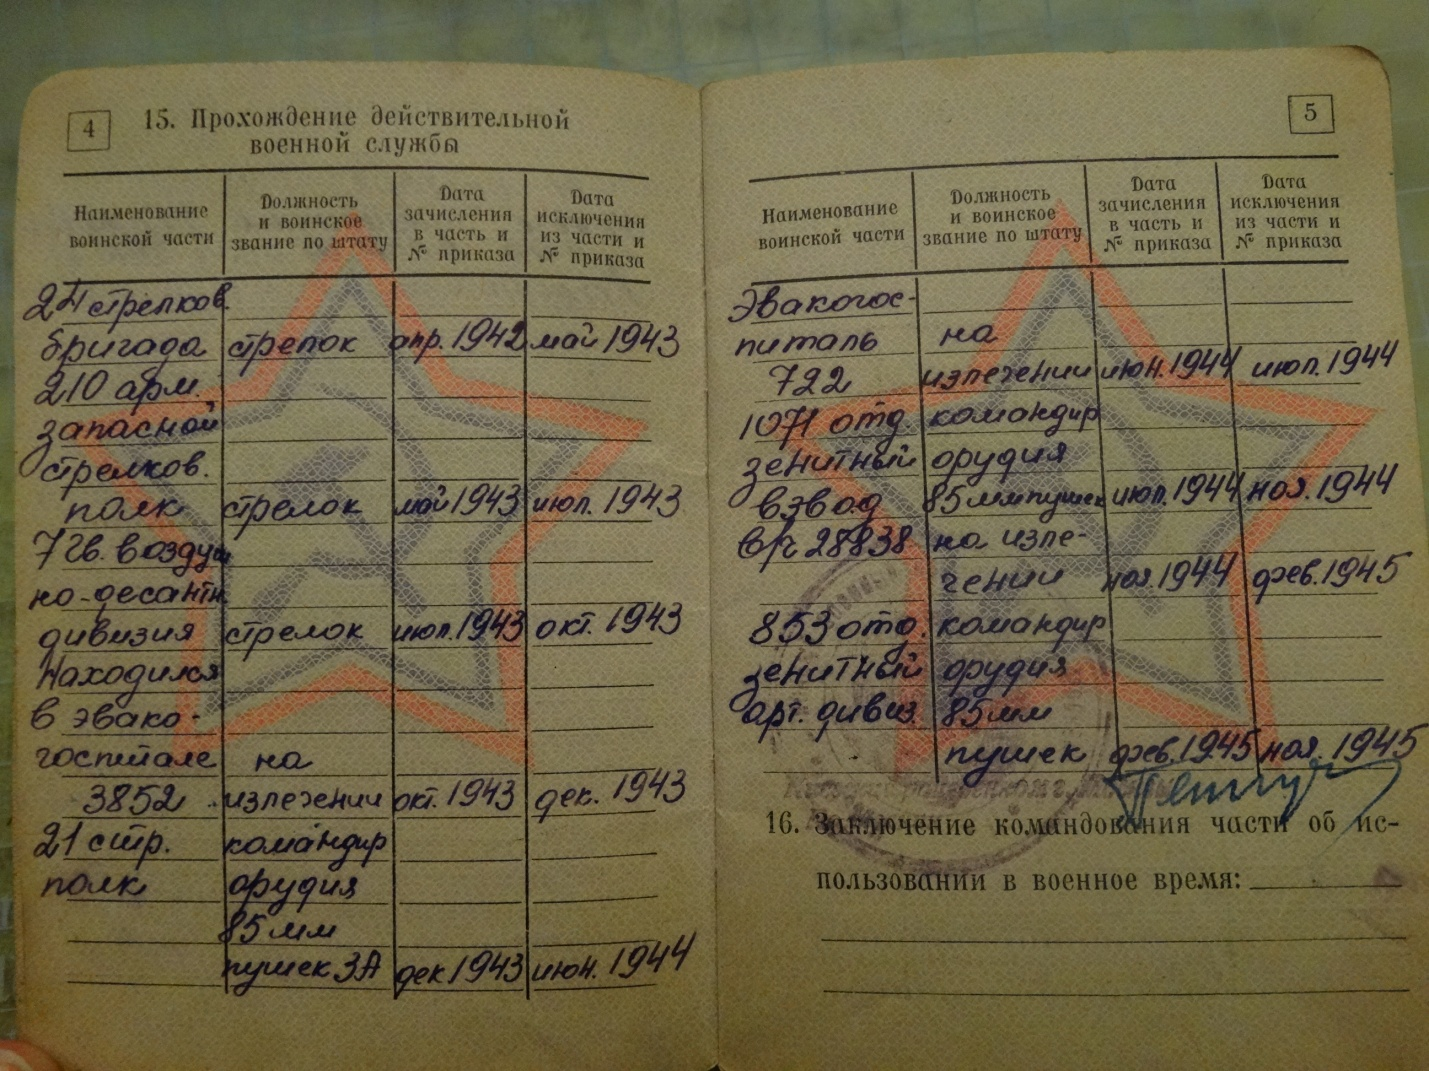 4
15. Прохождение действительной
военной службы
Наименование
воинской части
Должность
и воинское
звание по штату
Дата
зачисления
в часть и
№ приказа
Дата
исключения
из части и
№ приказа
24 стрелков.
бригада стрелок апр. 1942 май 1943
210 арм.
запасной
стрелков.
полк стрелок май 1943 июл. 1943
7 гв. воздуш
но-десантн
дивизия стрелок июл. 1943 окт. 1943
Находился
в эвако-
госпитале на
3852 излечении окт. 1943 дек. 1943
21 стр. командир
полк орудия
85 мм
пушек ЗА дек 1943 июн. 1944
5
Наименование
воинской части
Должность
и воинское
звание по штату
Дата
зачисления
в часть и
№ приказа
Дата
исключения
из части и
№ приказа
Эвакогос-
питаль на
722 излечении июн. 1944 июл. 1944
1071 отд. командир
зенитный орудия
взвод 85 мм пушек июл. 1944 ноя. 1944
в/ч 28838 на изле-
чении ноя. 1944 фев. 1945
853 отд. командир
зенитный орудия
арт. дивиз. 85 мм
пушек фев. 1945 ноя. 1945
16. Заключение командования части об ис-
пользовании в военное время: